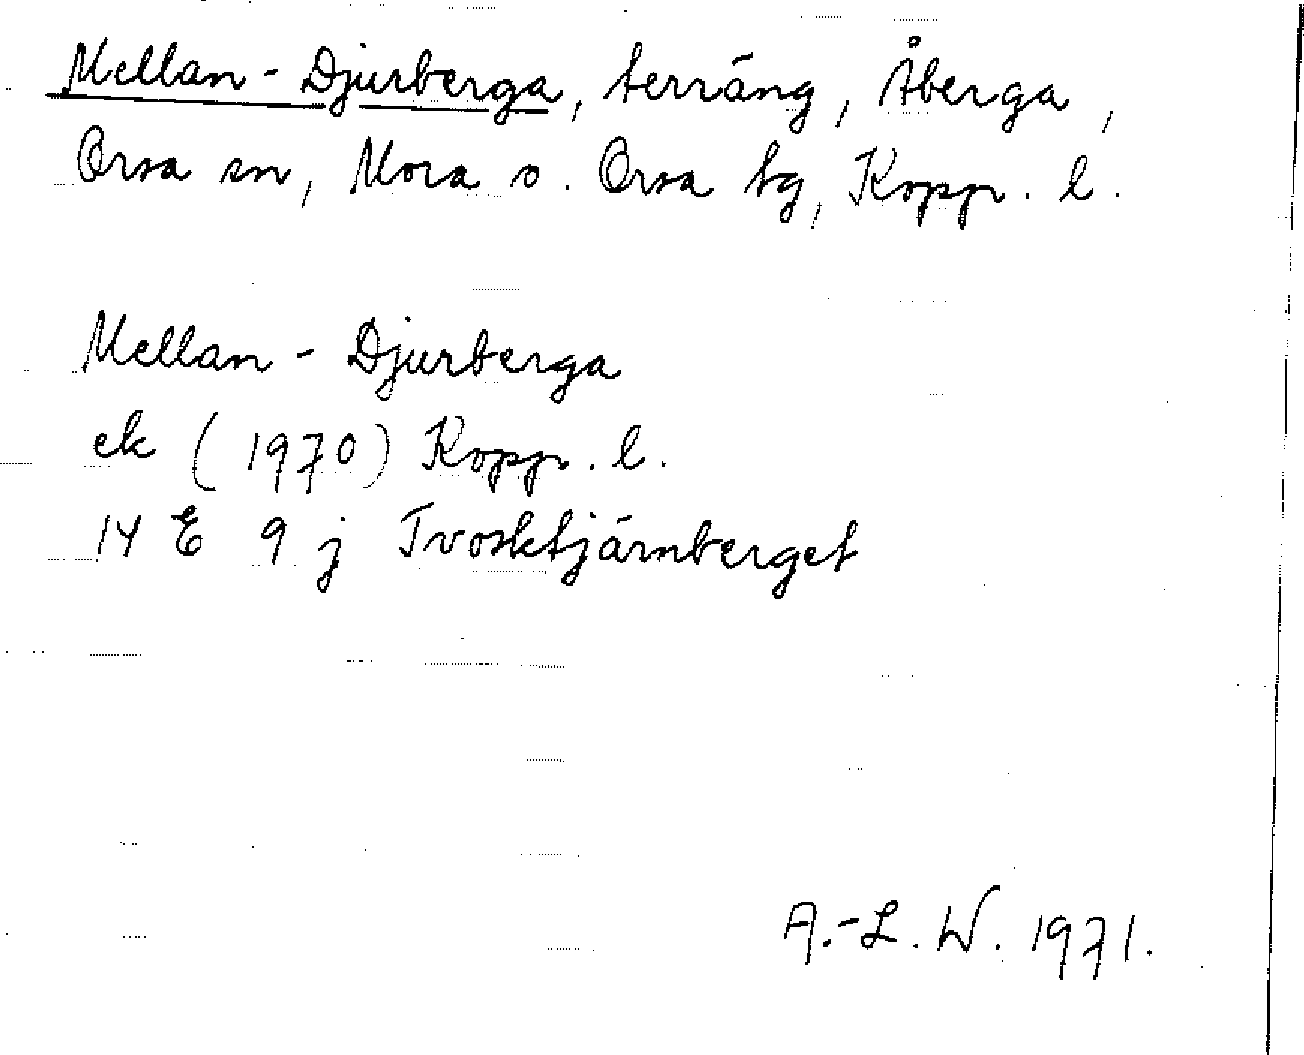 Mellan-Djurberga, terräng, Åberga,
Orsa sn, Mora o. Orsa tg, Kopp. l.
Mellan-Djurberga
ek (1970) Kopp. l.
14 E 9 j Tvosktjärnberget
A.-L. W. 1971.